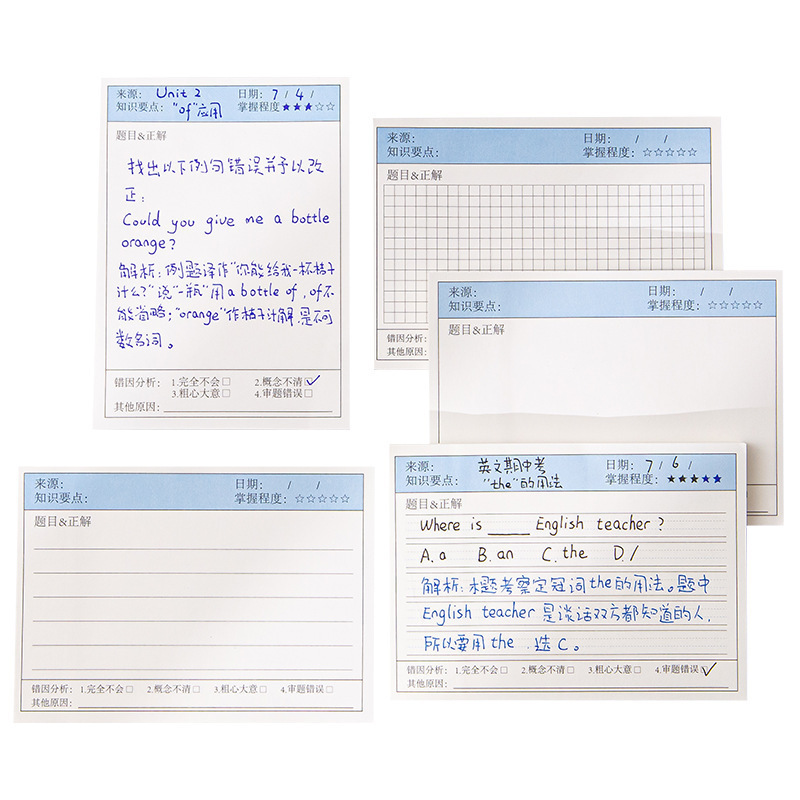 来源: Unit 2 日期: 7 / 4 /
知识要点: "of"应用 掌握程度★★★☆☆
题目&正解
找出以下例句错误并予以改
正:
Could you give me a bottle
orange?
解析:例题译作"你能给我一杯桔子
汁么?"说"一瓶"用a bottle of,of不
能省略;"orange"作桔子汁解,是不可
数名词。
错因分析: 1.完全不会□ 2.概念不清☑
3.粗心大意□ 4.审题错误□
其他原因:
来源: 日期: / /
知识要点: 掌握程度: ☆☆☆☆☆
题目&正解
错因分析:
其他原因:
来源: 日期: / /
知识要点: 掌握程度: ☆☆☆☆☆
题目&正解
来源: 英文期中考 日期: 7 / 6 /
知识要点: "the"的用法 掌握程度: ★★★★★
题目&正解
Where is ____ English teacher?
A. a B. an C. the D. /
解析:本题考察定冠词the的用法。题中
English teacher是谈话双方都知道的人,
所以要用the,选C。
错因分析: 1.完全不会□ 2.概念不清□ 3.粗心大意□ 4.审题错误☑
其他原因:
来源: 日期: / /
知识要点: 掌握程度: ☆☆☆☆☆
题目&正解
错因分析: 1.完全不会□ 2.概念不清□ 3.粗心大意□ 4.审题错误□
其他原因: